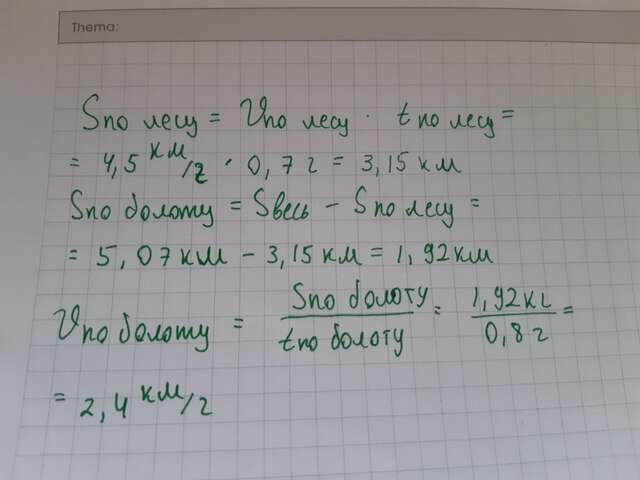 Thema:
Sпо лесу = Vпо лесу · tпо лесу =
= 4,5 км/г · 0,7 г = 3,15 км
Sпо болоту = Sвесь − Sпо лесу =
= 5,07 км − 3,15 км = 1,92 км
Vпо болоту = Sпо болоту / tпо болоту = 1,92 кг / 0,8 г =
= 2,4 км/г